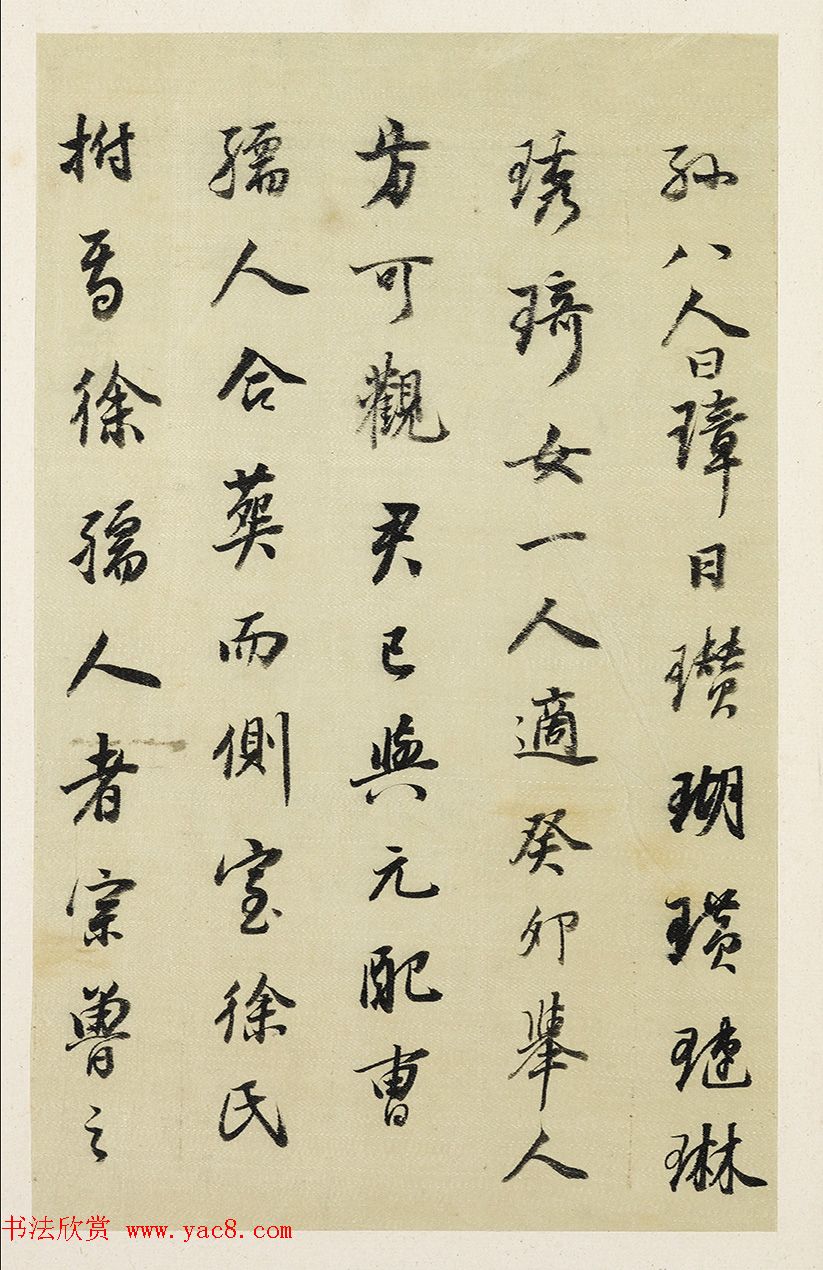 孫八人曰璋曰瓚瑚璜璉琳
琇琦女一人適癸卯舉人
可觀君已與元配曹
孺人合葬而側室徐氏
祔焉徐孺人者宗魯之
书法欣赏 www.yac8.com